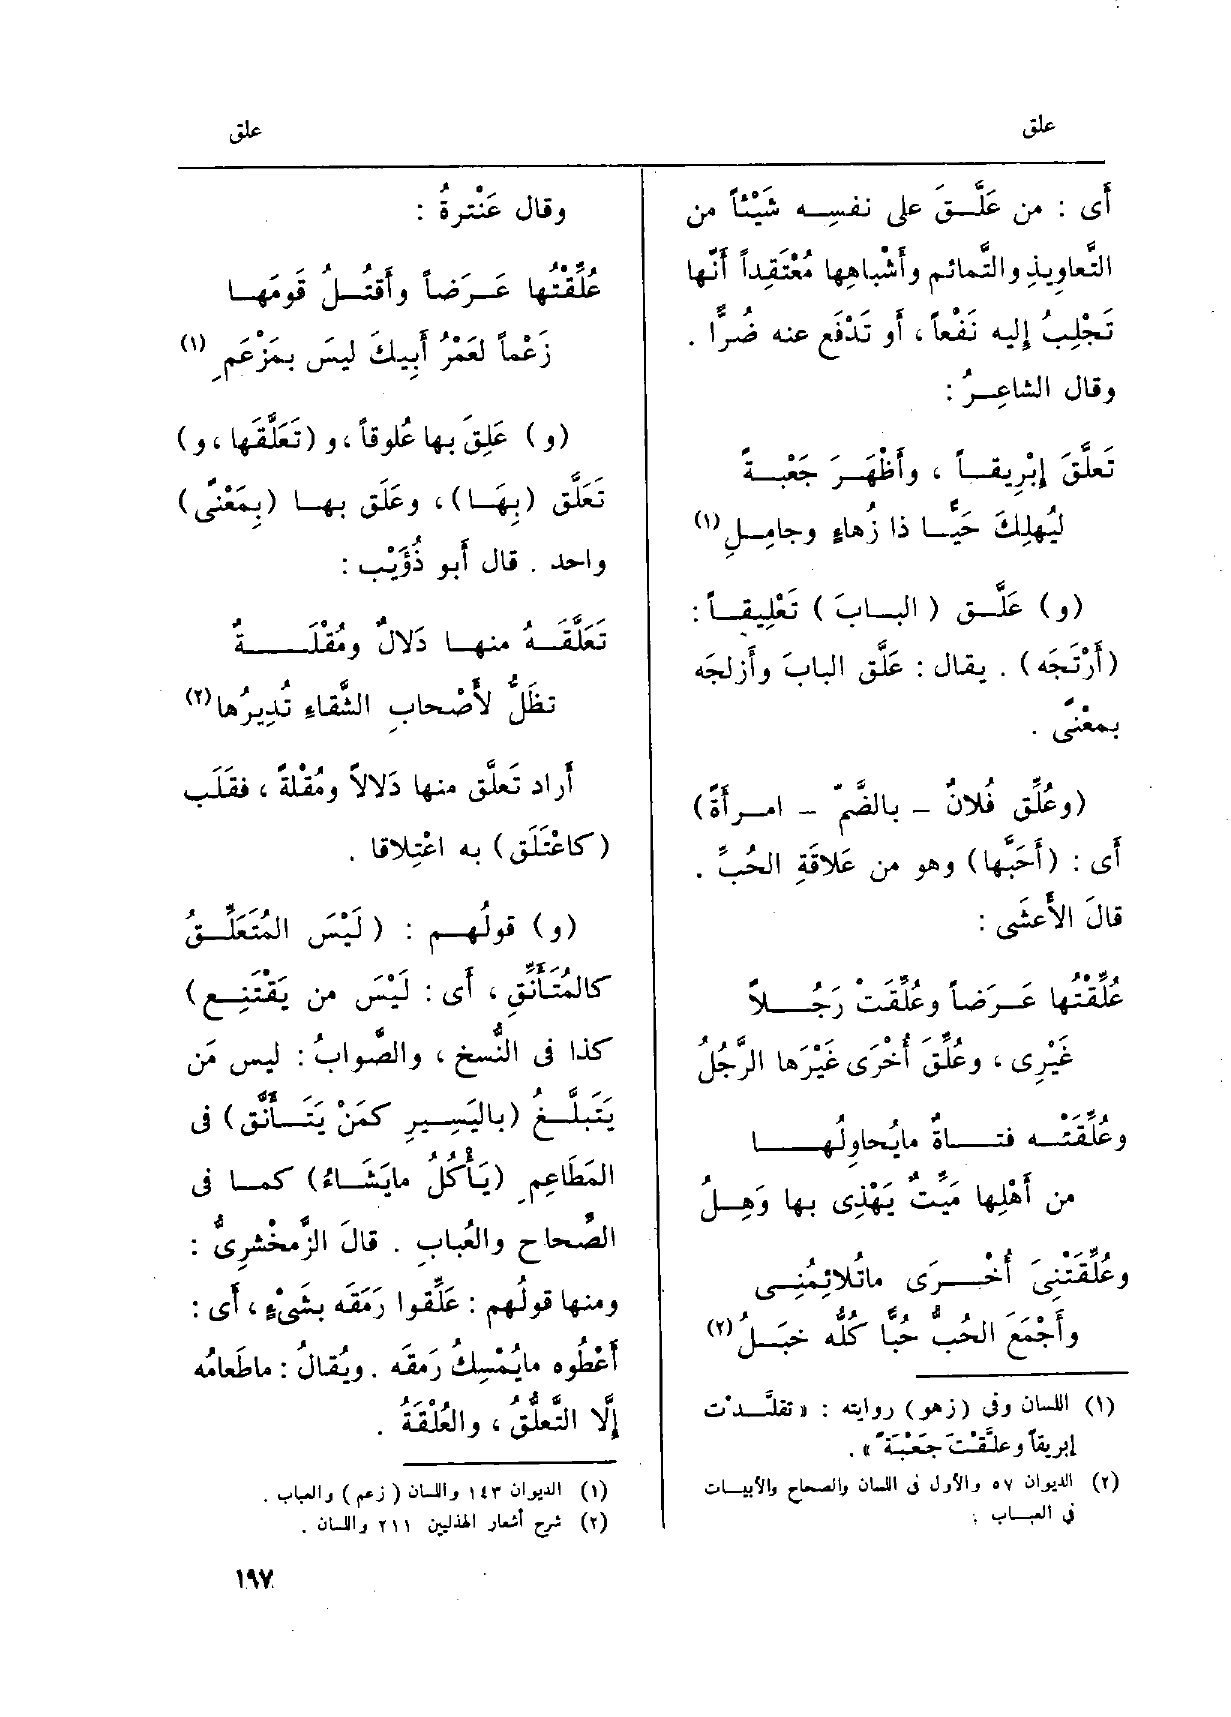 علق
علق
أى : من عَلَّقَ على نفسِه شَيْئاً من
التَّعاوِيذِ والتَّمائم وأَشْباهِها مُعْتَقِداً أَنّها
تَجْلِبُ إليه نَفْعاً ، أو تَدْفَع عنه ضُرًّا .
وقال الشاعِرُ :
تَعلَّقَ إبْرِيقاً ، وأَظْهَرَ جَعْبةً
لِيُهلِكَ حَيًّا ذا زُهاءٍ وجامِلِ (١)
(و) عَلَّق (البابَ) تَعْلِيقاً :
(أَرْتَجَه) . يقال : عَلَّق البابَ وأزلجَه
بمعْنًى .
(وعُلِّق فُلانٌ – بالضَّمّ – امرأَةً)
أى : (أَحَبَّها) وهو من عَلاقَةِ الحُبِّ .
قالَ الأَعشَى :
عُلِّقْتُها عَرَضاً وعُلِّقَتْ رَجُلاً
غَيْرِى ، وعُلِّقَ أُخْرَى غَيْرَها الرَّجُلُ
وعُلِّقَتْه فتاةٌ مايُحاوِلُها
من أَهْلِها مَيِّتٌ يَهْذِى بها وَهِلُ
وعُلِّقَتْنِىَ أُخْرَى ماتُلائِمُنِى
وأَجْمَعَ الحُبُّ حُبًّا كُلُّه خبَلُ (٢)
(١) اللسان وفى (زهو) روايته : « تقلَّدْت
إبريقاً وعلَّقْتَ جَعْبَةً » .
(٢) الديوان ٥٧ والأول فى اللسان والصحاح والأبيات
فى العباب :
وقال عَنْترةُ :
عُلِّقْتُها عَرَضاً وأَقتُلُ قَومَها
زَعْماً لعَمْرُ أَبِيكَ ليسَ بمَزْعَمِ (١)
(و) عَلِقَ بها عُلوقاً ، و (تَعَلَّقَها ، و)
تَعَلَّق (بِهَا) ، وعَلَق بها (بِمَعْنًى)
واحد . قال أبو ذُؤَيْب :
تَعَلَّقَهُ منها دَلالٌ ومُقْلَةٌ
تظَلُّ لأَصْحابِ الشَّقاءِ تُدِيرُها (٢)
أراد تَعلَّق منها دَلالاً ومُقْلةً ، فقَلَب
(كاعْتَلَق) به اعْتِلاقا .
(و) قولُهم : (لَيْسَ المُتَعَلِّقُ
كالمُتَأَنِّقِ ، أى : لَيْسَ من يَقْتَنِع)
كذا فى النُّسخ ، والصَّوابُ : ليس مَن
يَتَبلَّغُ (باليَسِيرِ كمَنْ يَتَأَنَّق) فى
المَطَاعِمِ (يَأْكُلُ مايَشَاءُ) كما فى
الصِّحاح والعُبابِ . قالَ الزَّمخْشرِىُّ :
ومنها قولُهم : عَلِّقوا رَمَقَه بشَىْءٍ ، أى :
أَعْطُوه مايُمْسِكُ رَمقَه . ويُقالُ : ماطَعامُه
إلَّا التَّعلُّقُ ، والعُلْقَةُ .
(١) الديوان ١٤٣ واللسان (زعم) والعباب .
(٢) شرح أشعار الهذليين ٢١١ واللسان .
١٩٧